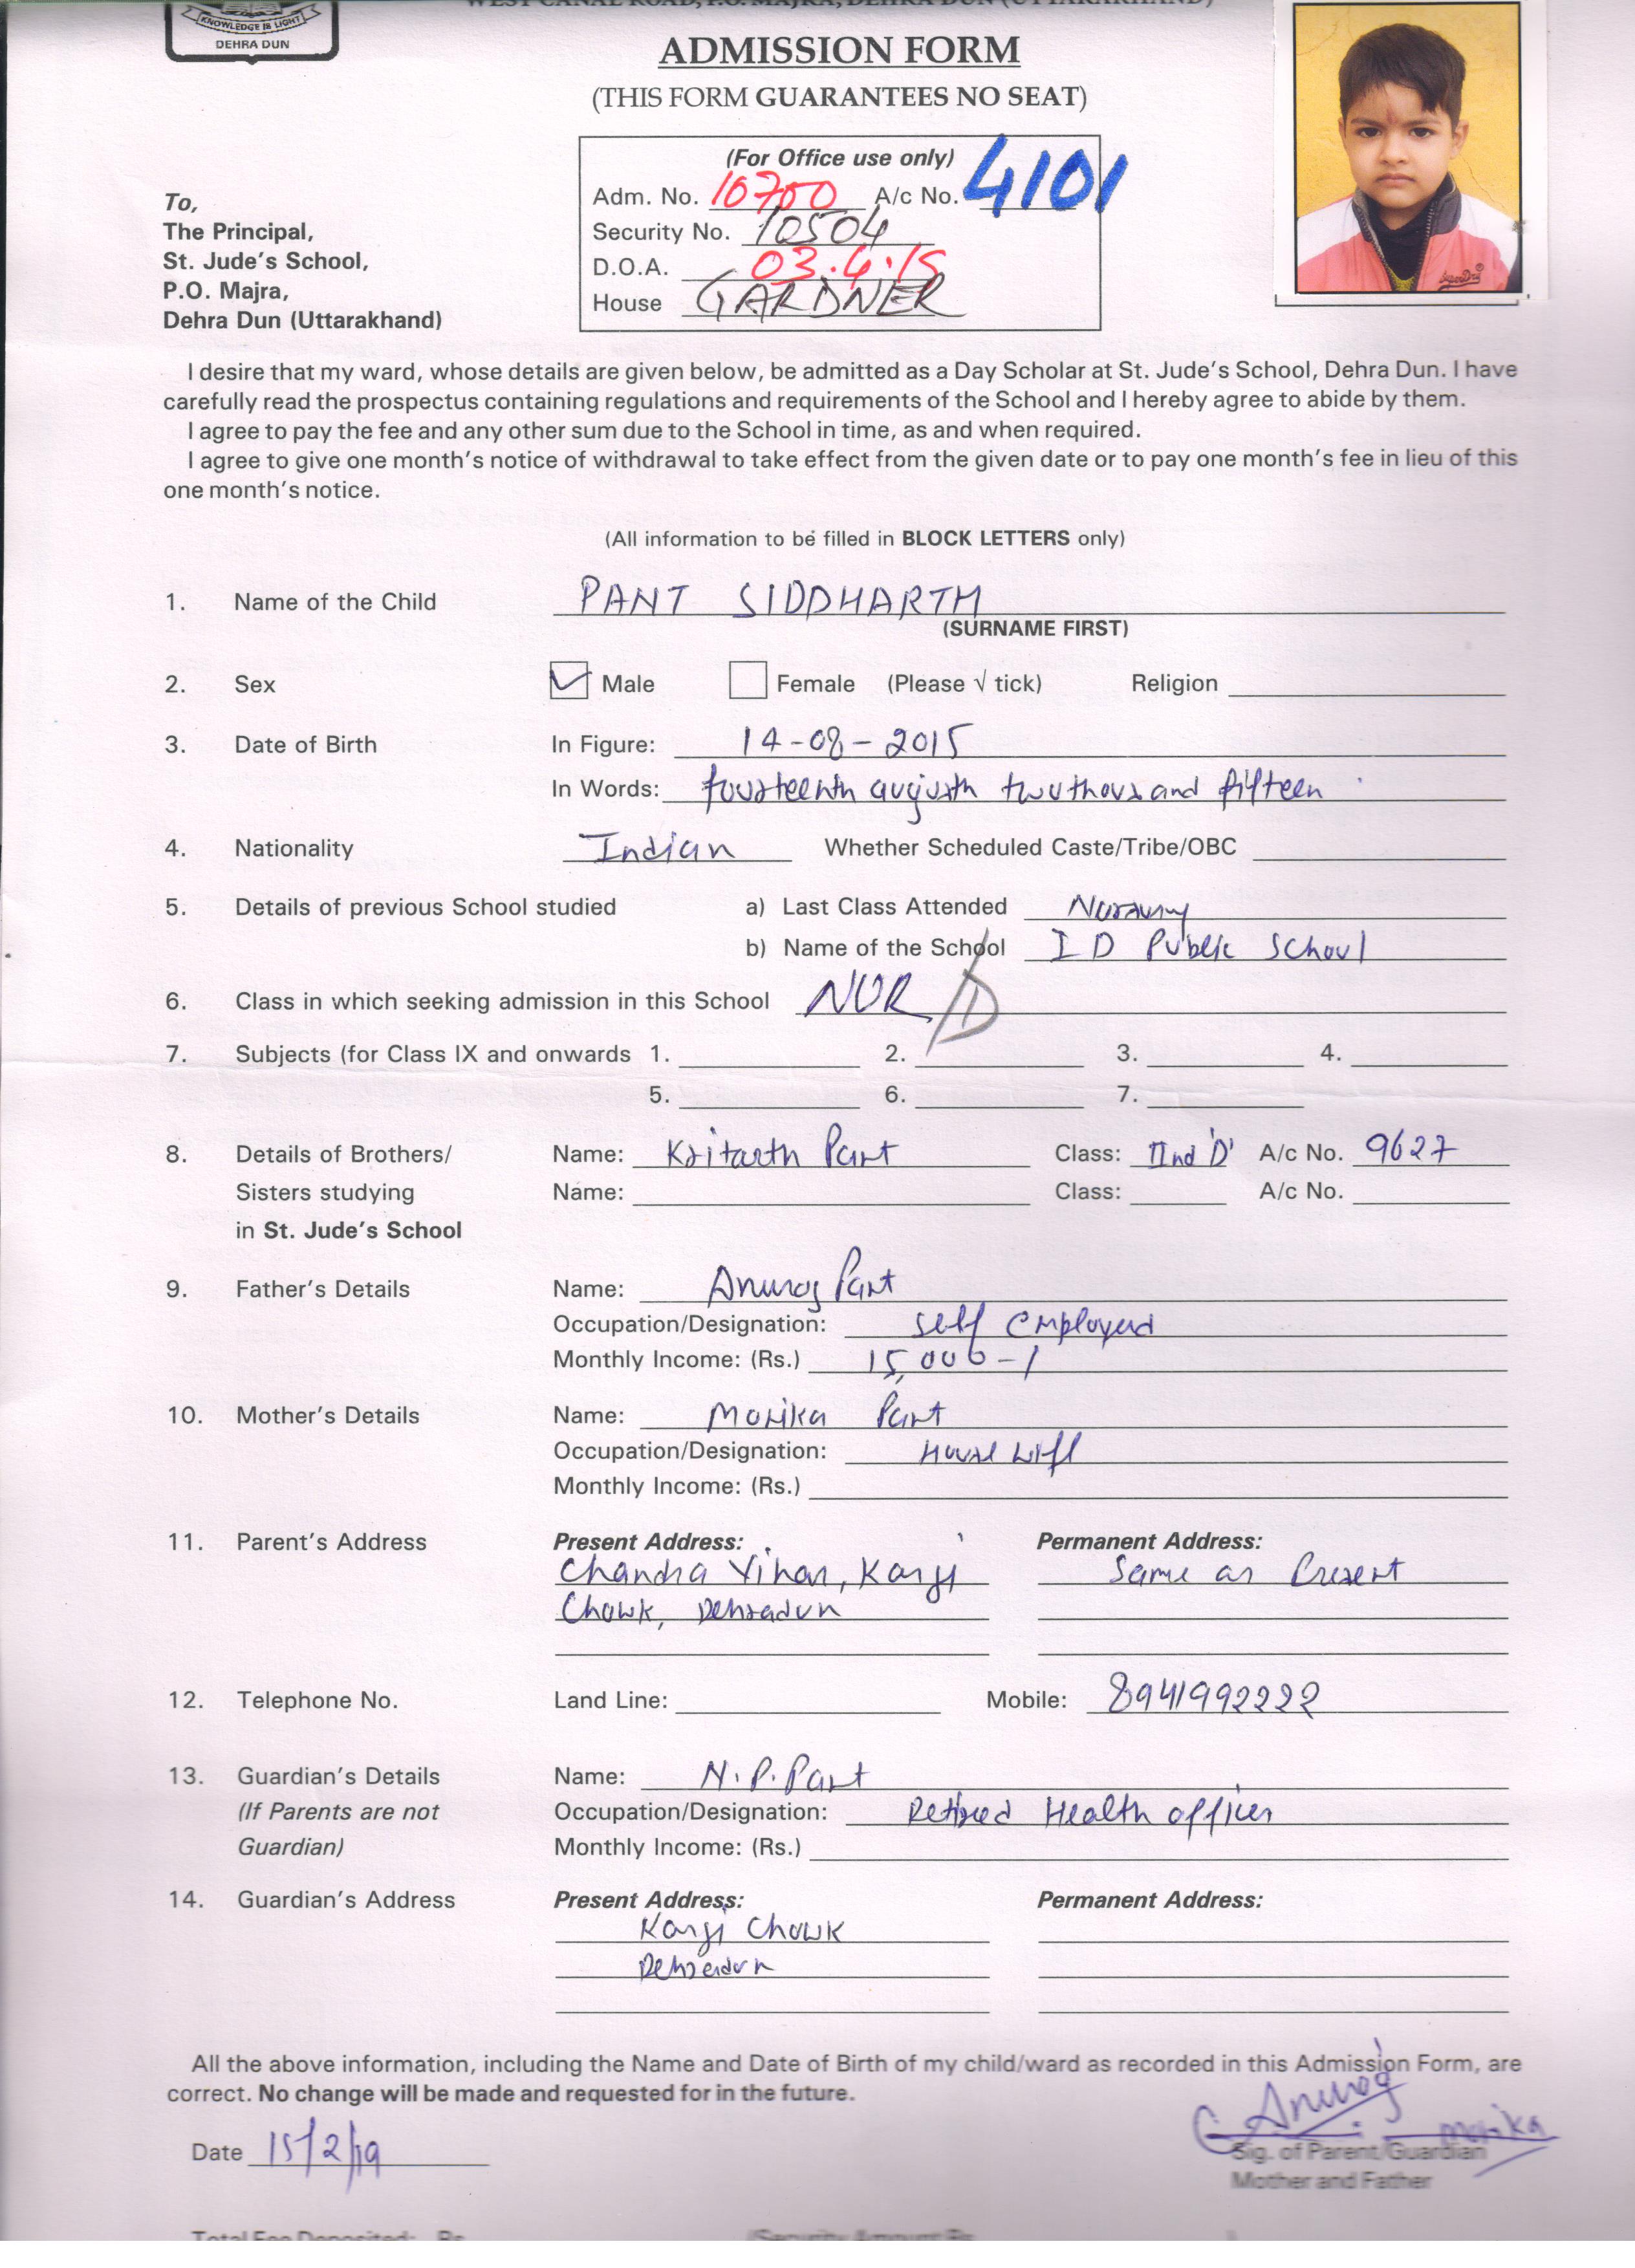 KNOWLEDGE IS LIGHT
DEHRA DUN
WEST CANAL ROAD, P.O. MAJRA, DEHRA DUN (UTTARAKHAND)
ADMISSION FORM
(THIS FORM GUARANTEES NO SEAT)
(For Office use only)
Adm. No. 10700 A/c No. 4101
Security No. 10504
D.O.A. 03.4.19
House GARDNER
To,
The Principal,
St. Jude's School,
P.O. Majra,
Dehra Dun (Uttarakhand)
I desire that my ward, whose details are given below, be admitted as a Day Scholar at St. Jude's School, Dehra Dun. I have
carefully read the prospectus containing regulations and requirements of the School and I hereby agree to abide by them.
I agree to pay the fee and any other sum due to the School in time, as and when required.
I agree to give one month's notice of withdrawal to take effect from the given date or to pay one month's fee in lieu of this
one month's notice.
(All information to be filled in BLOCK LETTERS only)
1. Name of the Child PANT SIDDHARTH
(SURNAME FIRST)
2. Sex Male Female (Please √ tick) Religion
3. Date of Birth In Figure: 14-08-2015
In Words: fourteenth augusth two thousand fifteen
4. Nationality Indian Whether Scheduled Caste/Tribe/OBC
5. Details of previous School studied a) Last Class Attended
b) Name of the School I D Public School
6. Class in which seeking admission in this School NUR D
7. Subjects (for Class IX and onwards 1. 2. 3. 4.
5. 6. 7.
8. Details of Brothers/ Name: Kritarth Pant Class: IInd 'D' A/c No. 9627
Sisters studying Name: Class: A/c No.
in St. Jude's School
9. Father's Details Name: Anurag Pant
Occupation/Designation: self employed
Monthly Income: (Rs.) 15,000-/
10. Mother's Details Name: Monika Pant
Occupation/Designation: House wife
Monthly Income: (Rs.)
11. Parent's Address Present Address: Permanent Address:
Chandra Vihar, Kargi Same as Present
Chowk, Dehradun
12. Telephone No. Land Line: Mobile: 8941992222
13. Guardian's Details Name: N.P. Pant
(If Parents are not Occupation/Designation: Retired Health officer
Guardian) Monthly Income: (Rs.)
14. Guardian's Address Present Address: Permanent Address:
Kargi Chowk
Dehradun
All the above information, including the Name and Date of Birth of my child/ward as recorded in this Admission Form, are
correct. No change will be made and requested for in the future.
Anurag Monika
Date 15/2/19
Sig. of Parent/Guardian
Mother and Father
Total Fee Deposited: Rs.